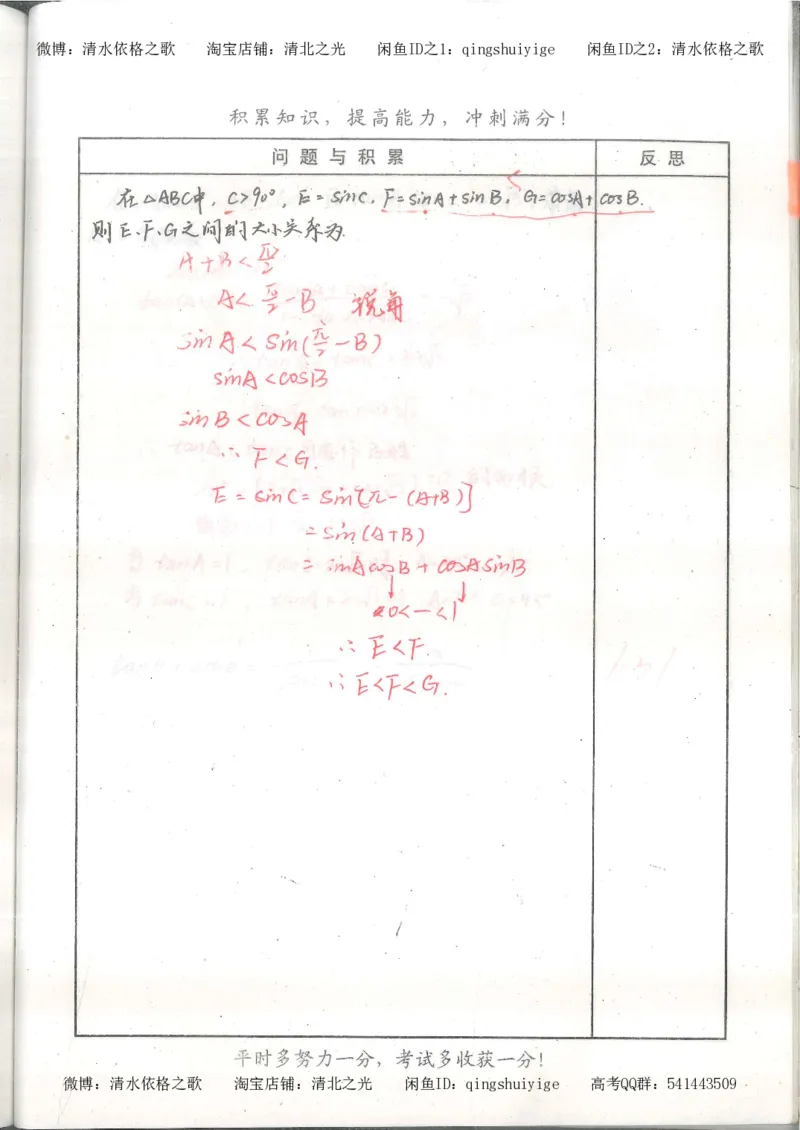 微博：清水依格之歌 淘宝店铺：清北之光 闲鱼ID之1：qingshuiyige 闲鱼ID之2：清水依格之歌
积累知识，提高能力，冲刺满分！
问题与积累 反思
在△ABC中，C>90°，E=sinC，F=sinA+sinB，G=cosA+cosB.
则E、F、G之间的大小关系为
A+B<π/2
A<π/2-B 锐角
sinA<sin(π/2-B)
sinA<cosB
sinB<cosA
∴F<G.
E=sinC=sin[π-(A+B)]
=sin(A+B)
=sinAcosB+cosAsinB
0<一<1
∴E<F.
∴E<F<G.
平时多努力一分，考试多收获一分！
微博：清水依格之歌 淘宝店铺：清北之光 闲鱼ID：qingshuiyige 高考QQ群：541443509